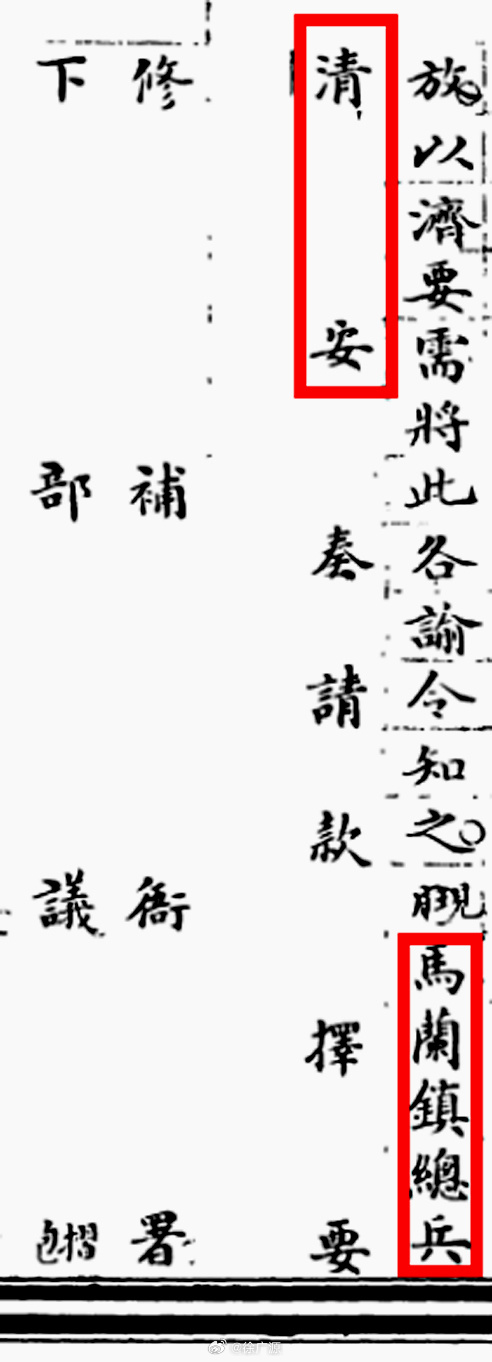 放以濟要需將此各諭令知之○馬蘭鎮總兵
清安奏請款擇要
修補衙署
下部議
@徐广源